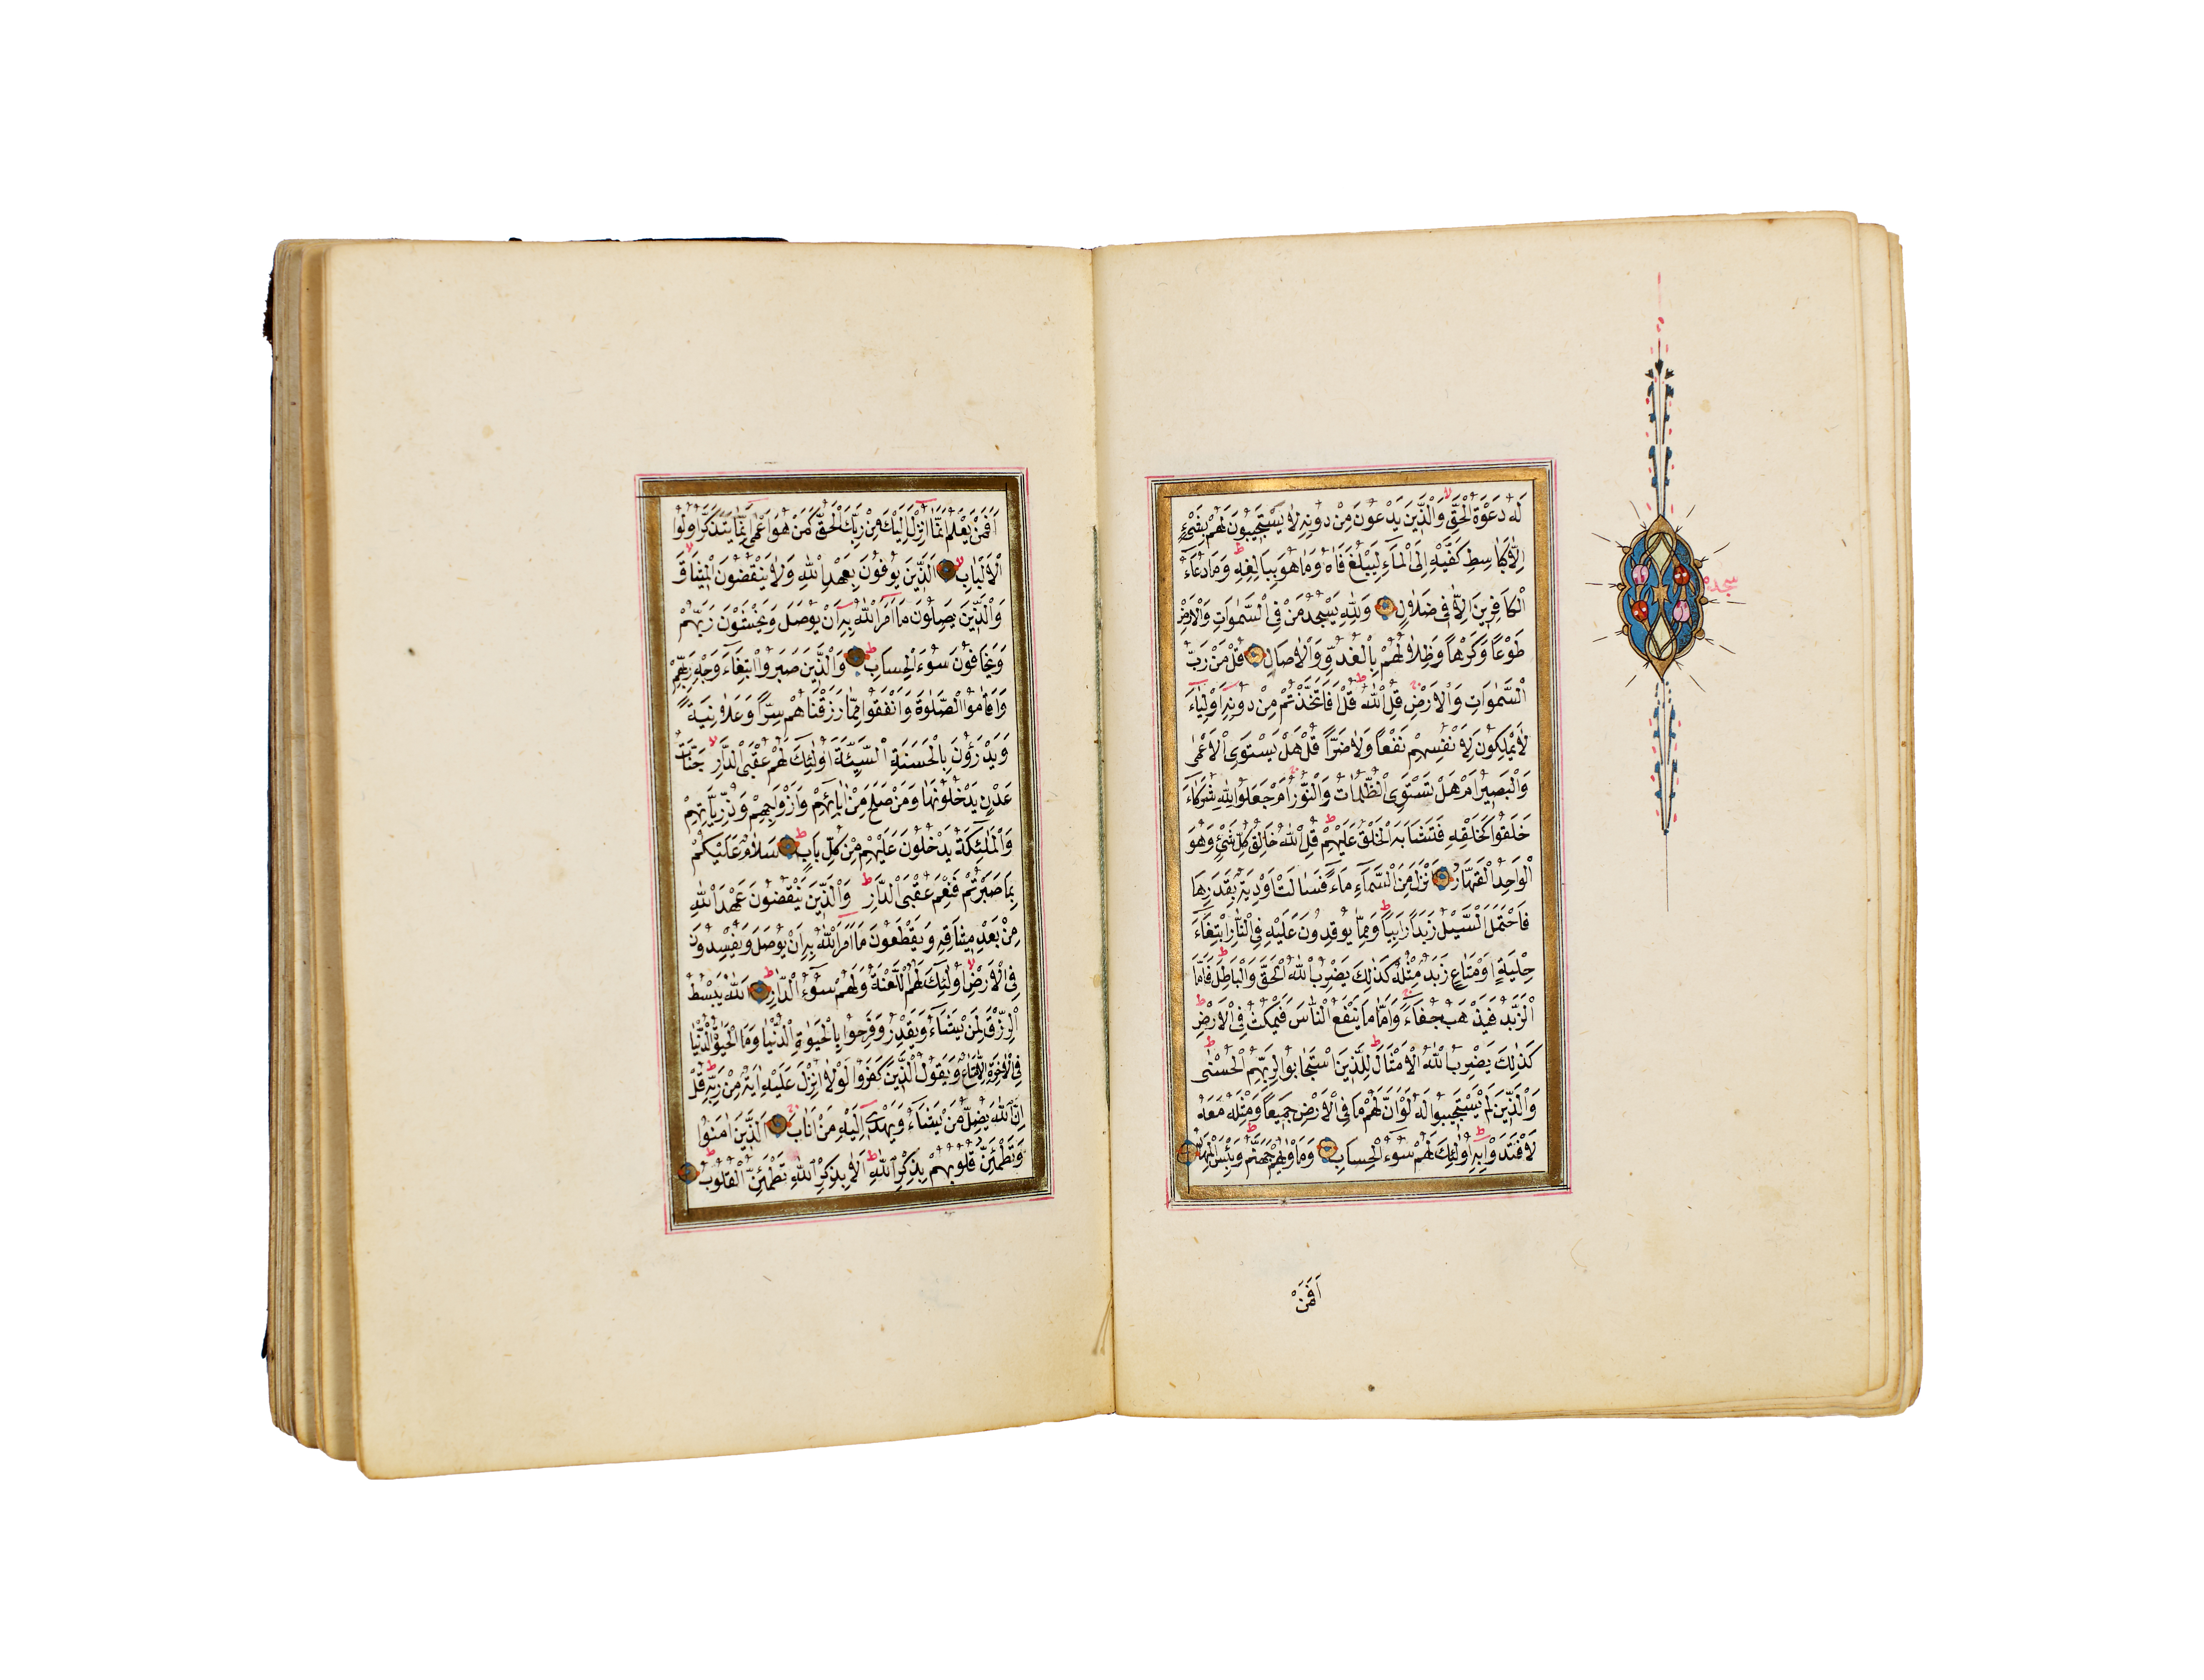 لَهُ دَعْوَةُ الْحَقِّ وَالَّذِينَ يَدْعُونَ مِنْ دُونِهِ لَا يَسْتَجِيبُونَ لَهُمْ بِشَيْءٍ
اِلَّا كَبَاسِطِ كَفَّيْهِ اِلَى الْمَاءِ لِيَبْلُغَ فَاهُ وَمَا هُوَ بِبَالِغِهِ وَمَا دُعَاءُ
الْكَافِرِينَ اِلَّا فِي ضَلَالٍ وَلِلّٰهِ يَسْجُدُ مَنْ فِي السَّمٰوَاتِ وَالْاَرْضِ
طَوْعًا وَكَرْهًا وَظِلَالُهُمْ بِالْغُدُوِّ وَالْاٰصَالِ قُلْ مَنْ رَبُّ
السَّمٰوَاتِ وَالْاَرْضِ قُلِ اللّٰهُ قُلْ اَفَاتَّخَذْتُمْ مِنْ دُونِهِ اَوْلِيَاءَ
لَا يَمْلِكُونَ لِاَنْفُسِهِمْ نَفْعًا وَلَا ضَرًّا قُلْ هَلْ يَسْتَوِي الْاَعْمٰى
وَالْبَصِيرُ اَمْ هَلْ تَسْتَوِي الظُّلُمَاتُ وَالنُّورُ اَمْ جَعَلُوا لِلّٰهِ شُرَكَاءَ
خَلَقُوا كَخَلْقِهِ فَتَشَابَهَ الْخَلْقُ عَلَيْهِمْ قُلِ اللّٰهُ خَالِقُ كُلِّ شَيْءٍ وَهُوَ
الْوَاحِدُ الْقَهَّارُ اَنْزَلَ مِنَ السَّمَاءِ مَاءً فَسَالَتْ اَوْدِيَةٌ بِقَدَرِهَا
فَاحْتَمَلَ السَّيْلُ زَبَدًا رَابِيًا وَمِمَّا يُوقِدُونَ عَلَيْهِ فِي النَّارِ ابْتِغَاءَ
حِلْيَةٍ اَوْ مَتَاعٍ زَبَدٌ مِثْلُهُ كَذٰلِكَ يَضْرِبُ اللّٰهُ الْحَقَّ وَالْبَاطِلَ فَاَمَّا
الزَّبَدُ فَيَذْهَبُ جُفَاءً وَاَمَّا مَا يَنْفَعُ النَّاسَ فَيَمْكُثُ فِي الْاَرْضِ
كَذٰلِكَ يَضْرِبُ اللّٰهُ الْاَمْثَالَ لِلَّذِينَ اسْتَجَابُوا لِرَبِّهِمُ الْحُسْنٰى
وَالَّذِينَ لَمْ يَسْتَجِيبُوا لَهُ لَوْ اَنَّ لَهُمْ مَا فِي الْاَرْضِ جَمِيعًا وَمِثْلَهُ مَعَهُ
لَافْتَدَوْا بِهِ اُولٰئِكَ لَهُمْ سُوءُ الْحِسَابِ وَمَأْوٰيهُمْ جَهَنَّمُ وَبِئْسَ الْمِهَادُ
سجده
اَفَمَنْ
اَفَمَنْ يَعْلَمُ اَنَّمَا اُنْزِلَ اِلَيْكَ مِنْ رَبِّكَ الْحَقُّ كَمَنْ هُوَ اَعْمٰى اِنَّمَا يَتَذَكَّرُ اُولُوا
الْاَلْبَابِ اَلَّذِينَ يُوفُونَ بِعَهْدِ اللّٰهِ وَلَا يَنْقُضُونَ الْمِيثَاقَ
وَالَّذِينَ يَصِلُونَ مَا اَمَرَ اللّٰهُ بِهِ اَنْ يُوصَلَ وَيَخْشَوْنَ رَبَّهُمْ
وَيَخَافُونَ سُوءَ الْحِسَابِ وَالَّذِينَ صَبَرُوا ابْتِغَاءَ وَجْهِ رَبِّهِمْ
وَاَقَامُوا الصَّلٰوةَ وَاَنْفَقُوا مِمَّا رَزَقْنَاهُمْ سِرًّا وَعَلَانِيَةً
وَيَدْرَؤُنَ بِالْحَسَنَةِ السَّيِّئَةَ اُولٰئِكَ لَهُمْ عُقْبَى الدَّارِ جَنَّاتُ
عَدْنٍ يَدْخُلُونَهَا وَمَنْ صَلَحَ مِنْ اٰبَائِهِمْ وَاَزْوَاجِهِمْ وَذُرِّيَّاتِهِمْ
وَالْمَلٰئِكَةُ يَدْخُلُونَ عَلَيْهِمْ مِنْ كُلِّ بَابٍ سَلَامٌ عَلَيْكُمْ
بِمَا صَبَرْتُمْ فَنِعْمَ عُقْبَى الدَّارِ وَالَّذِينَ يَنْقُضُونَ عَهْدَ اللّٰهِ
مِنْ بَعْدِ مِيثَاقِهِ وَيَقْطَعُونَ مَا اَمَرَ اللّٰهُ بِهِ اَنْ يُوصَلَ وَيُفْسِدُونَ
فِي الْاَرْضِ اُولٰئِكَ لَهُمُ اللَّعْنَةُ وَلَهُمْ سُوءُ الدَّارِ اَللّٰهُ يَبْسُطُ
الرِّزْقَ لِمَنْ يَشَاءُ وَيَقْدِرُ وَفَرِحُوا بِالْحَيٰوةِ الدُّنْيَا وَمَا الْحَيٰوةُ الدُّنْيَا
فِي الْاٰخِرَةِ اِلَّا مَتَاعٌ وَيَقُولُ الَّذِينَ كَفَرُوا لَوْلَا اُنْزِلَ عَلَيْهِ اٰيَةٌ مِنْ رَبِّهِ قُلْ
اِنَّ اللّٰهَ يُضِلُّ مَنْ يَشَاءُ وَيَهْدِي اِلَيْهِ مَنْ اَنَابَ اَلَّذِينَ اٰمَنُوا
وَتَطْمَئِنُّ قُلُوبُهُمْ بِذِكْرِ اللّٰهِ اَلَا بِذِكْرِ اللّٰهِ تَطْمَئِنُّ الْقُلُوبُ